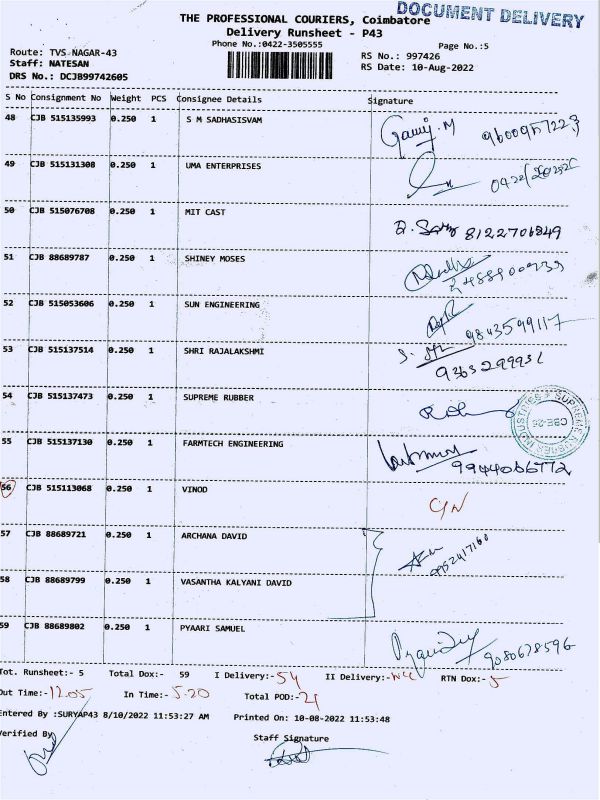 THE PROFESSIONAL COURIERS, Coimbatore
DOCUMENT DELIVERY
Delivery Runsheet - P43
Phone No.:0422-3505555
Page No.:5
Route: TVS NAGAR-43
RS No.: 997426
Staff: NATESAN
RS Date: 10-Aug-2022
DRS No.: DCJB99742605
S No Consignment No Weight PCS Consignee Details Signature
48 CJB 515135993 0.250 1 S M SADHASISVAM
49 CJB 515131308 0.250 1 UMA ENTERPRISES
50 CJB 515076708 0.250 1 MIT CAST 8122706849
51 CJB 88689787 0.250 1 SHINEY MOSES
52 CJB 515053606 0.250 1 SUN ENGINEERING 9843599117
53 CJB 515137514 0.250 1 SHRI RAJALAKSHMI
54 CJB 515137473 0.250 1 SUPREME RUBBER
55 CJB 515137130 0.250 1 FARMTECH ENGINEERING 9944066772
56 CJB 515113068 0.250 1 VINOD
57 CJB 88689721 0.250 1 ARCHANA DAVID 9952417160
58 CJB 88689799 0.250 1 VASANTHA KALYANI DAVID
59 CJB 88689802 0.250 1 PYAARI SAMUEL 9080678596
Tot. Runsheet:- 5 Total Dox:- 59 I Delivery:- 54 II Delivery:- RTN Dox:- 5
Out Time:- 12.05 In Time:- 5.20 Total POD:- 21
Entered By :SURYAP43 8/10/2022 11:53:27 AM Printed On: 10-08-2022 11:53:48
Verified By Staff Signature